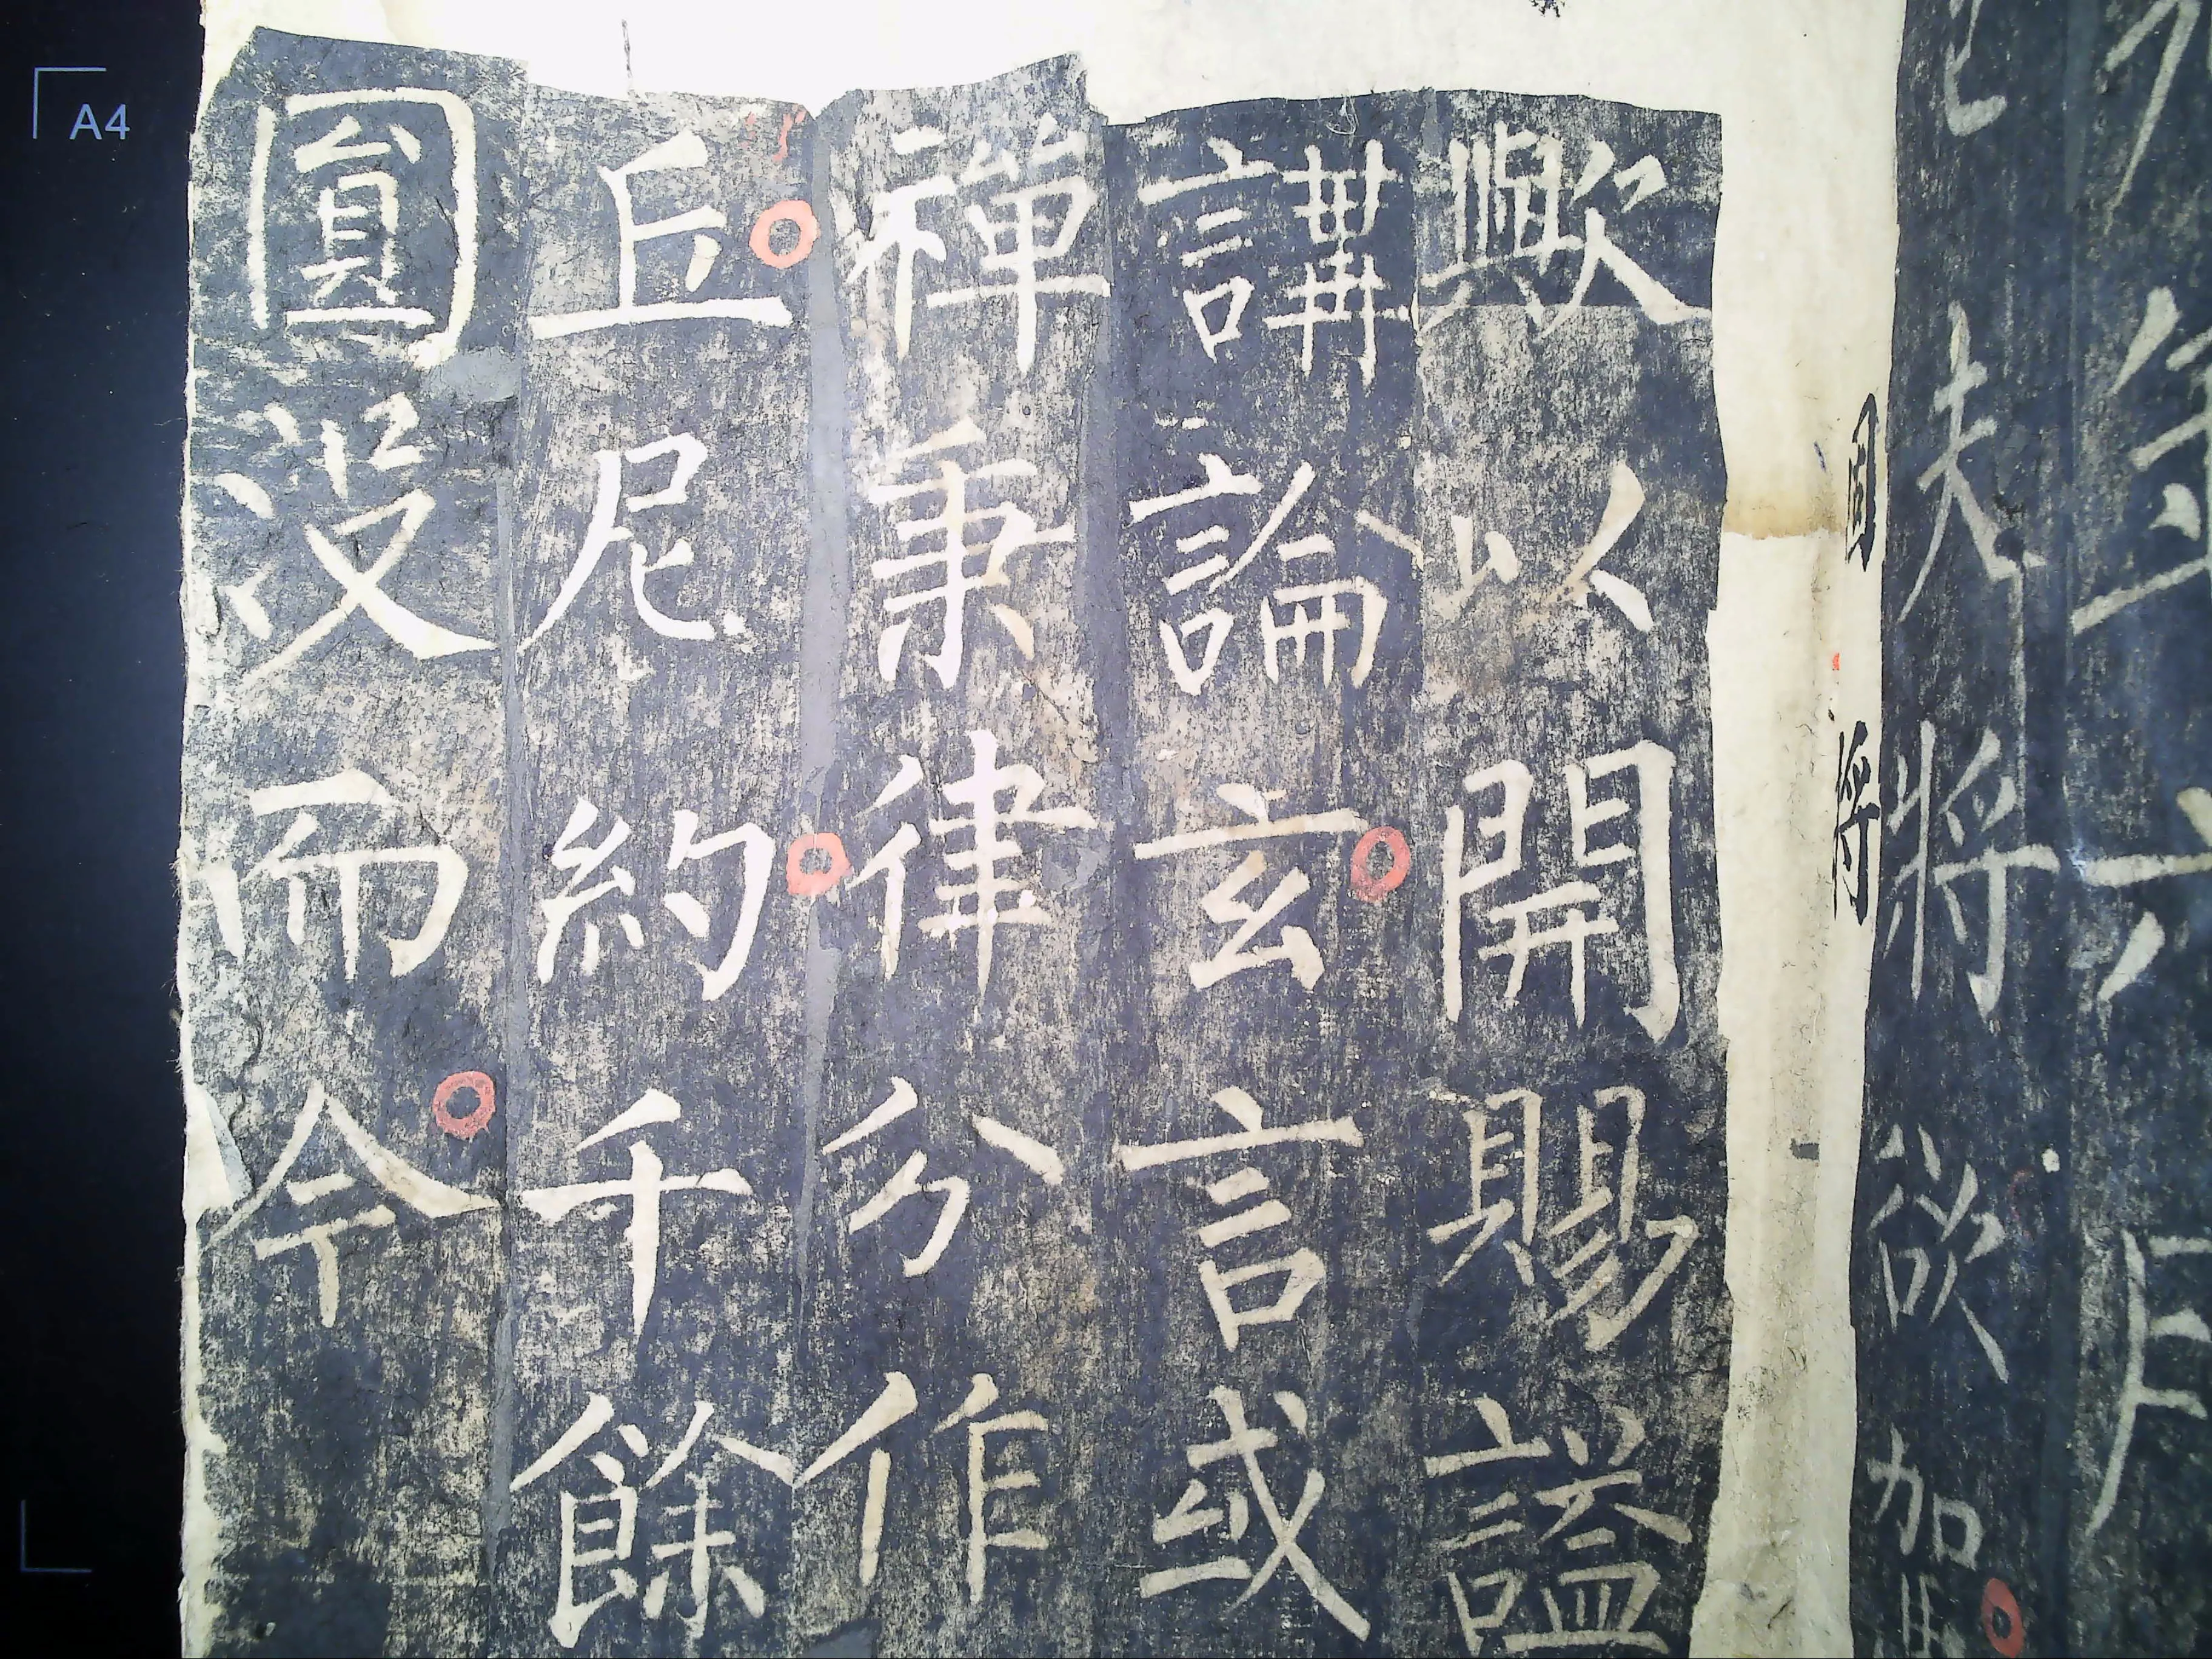 將欲加
固將
歟以開賜謚
講論玄言或
禪秉律分作
丘尼約千餘
圓没而今
A4